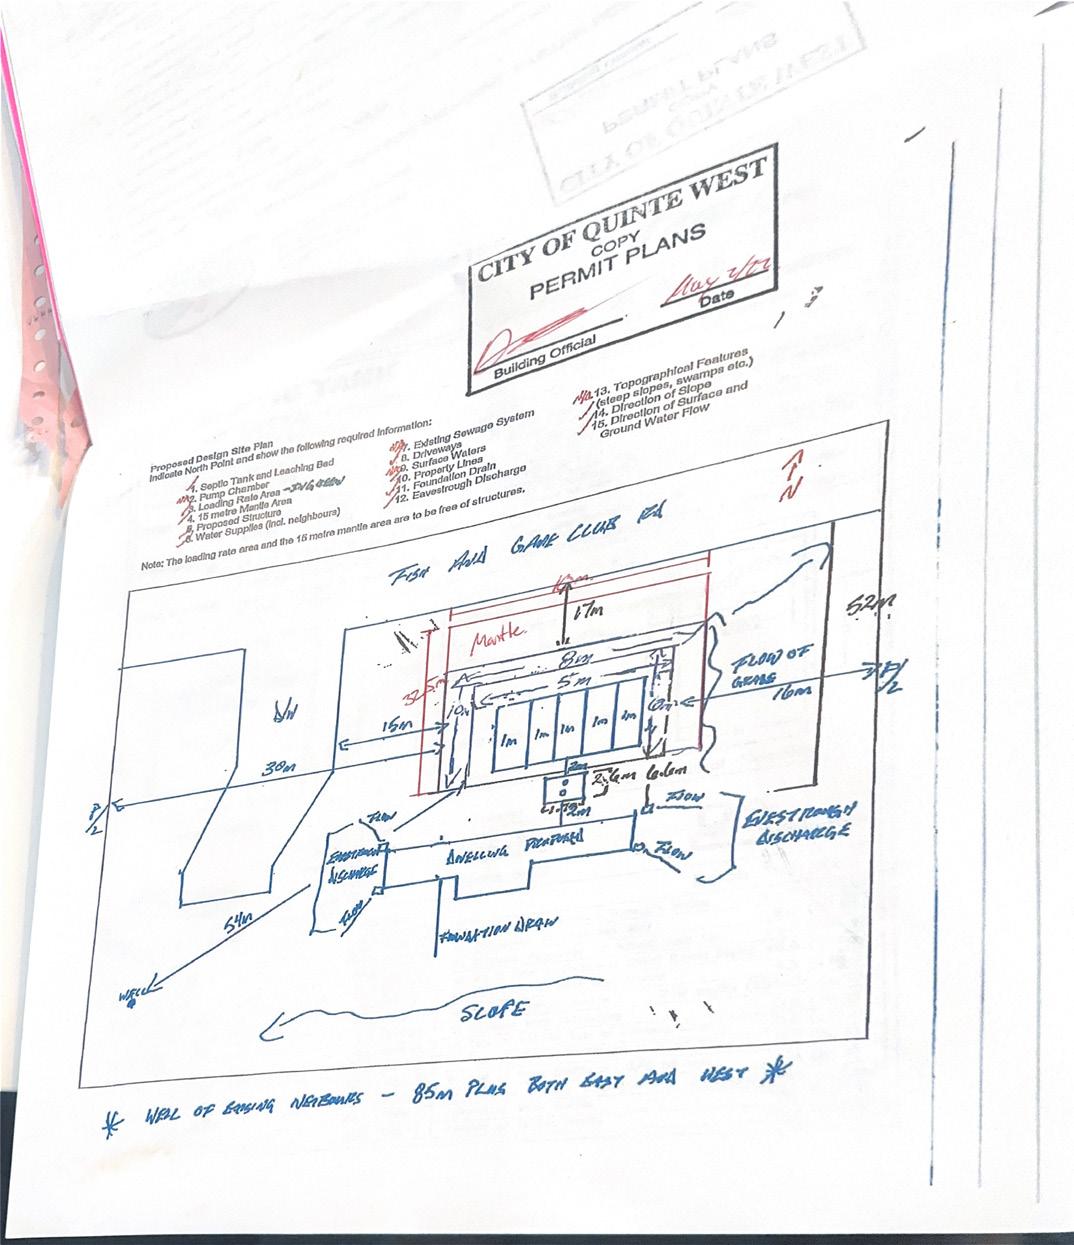 CITY OF QUINTE WEST
COPY
PERMIT PLANS
Building Official
Date
Proposed Design Site Plan
Indicate North Point and show the following required information:
1. Septic Tank and Leaching Bed
2. Pump Chamber
3. Loading Rate Area
4. 15 metre Mantle Area
5. Proposed Structure
6. Water Supplies (incl. neighbours)
7. Existing Sewage System
8. Driveways
9. Surface Waters
10. Property Lines
11. Foundation Drain
12. Eavestrough Discharge
13. Topographical Features
(steep slopes, swamps etc.)
14. Direction of Slope
15. Direction of Surface and
Ground Water Flow
Note: The loading rate area and the 15 metre mantle area are to be free of structures.
N
FISH AND GAME CLUB RD
17m
52m
Mantle
8m
5m
FLOW OF
GRADE
16m
15m
D/W
10m
6m
1m
1m
1m
1m
1m
30m
P/L
P/L
2m
6.6m
2m
FLOW
FLOW
EVESTROUGH
DISCHARGE
DWELLING PROPOSED
FLOW
DISCHARGE
FLOW
54m
FOUNDATION DRAW
WELL
SLOPE
* WELL OF EXISING NEIBOURS - 85m PLUS BOTH EAST AND WEST *